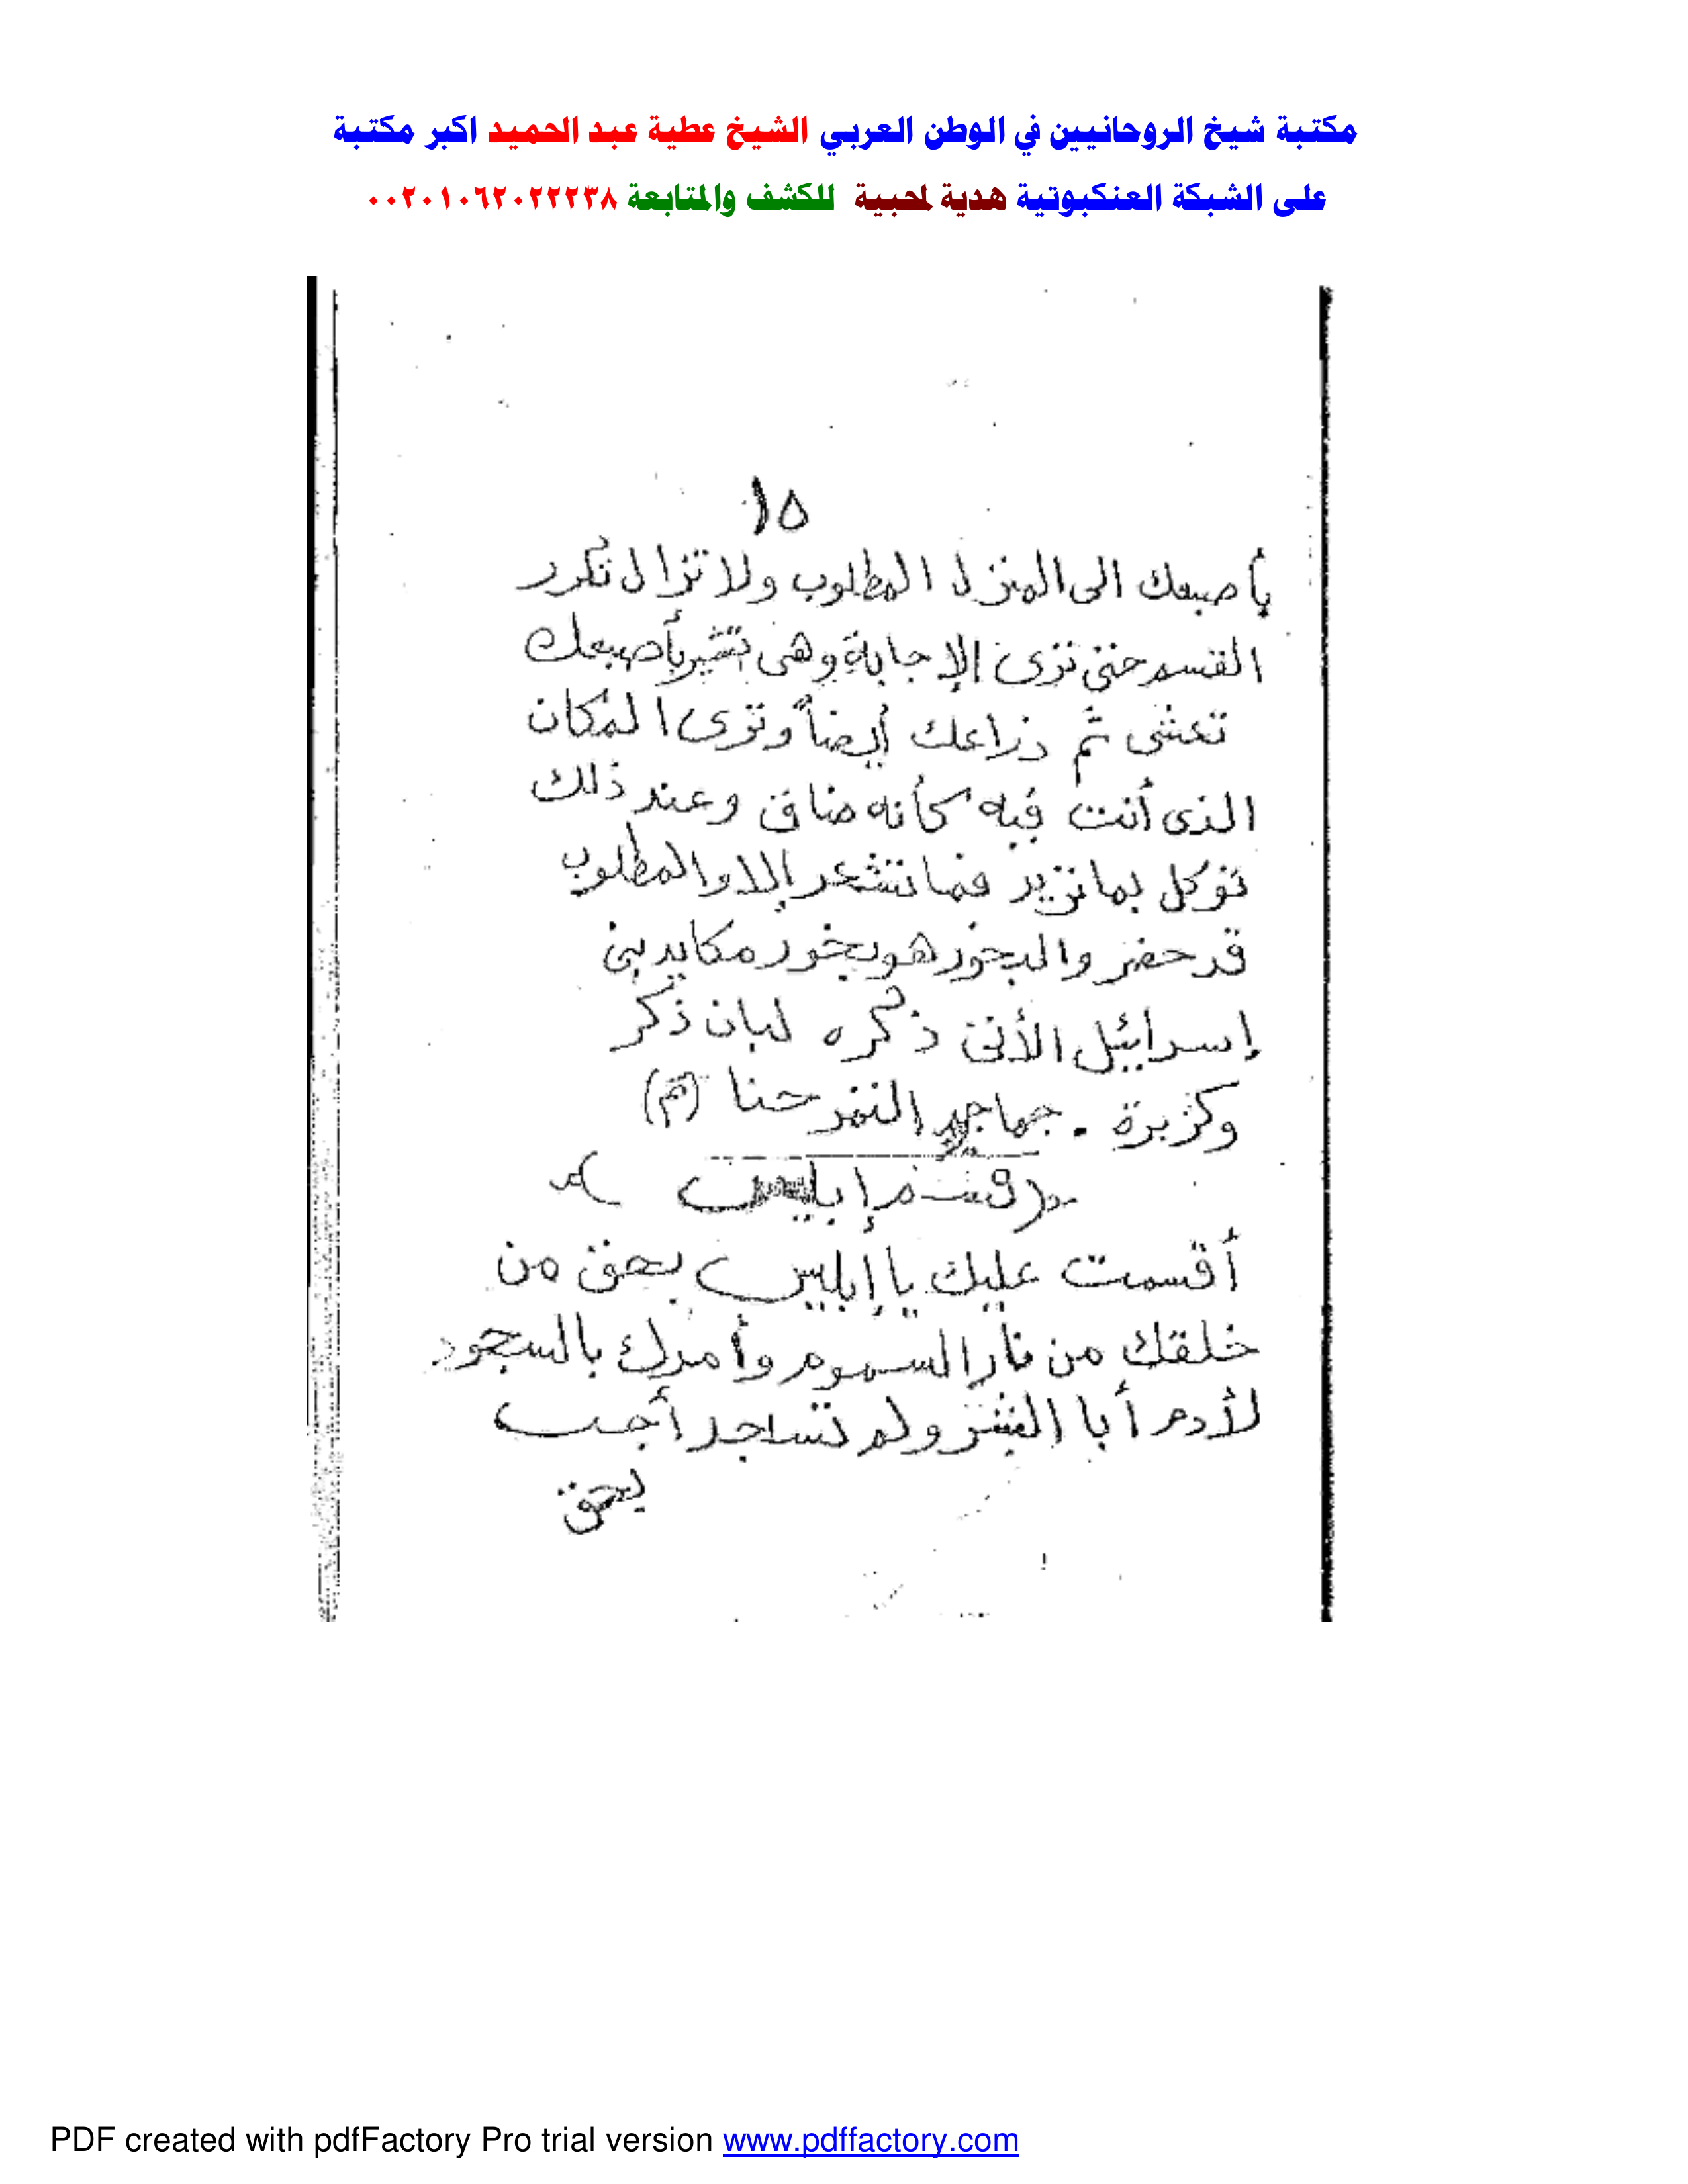 مكتبة شيخ الروحانيين في الوطن العربي الشيخ عطية عبد الحميد اكبر مكتبة
على الشبكة العنكبوتية هدية لمحبية للكشف والمتابعة ٠٠٢٠١٠٦٢٠٢٢٢٣٨
١٥
بأصبعك الى المنزل المطلوب ولا تزال تكرر
القسم حتى ترى الإجابة وهى تشير بأصبعك
تمشى ثم ذراعك أيضاً وترى المكان
الذى أنت فيه كأنه ضاق وعند ذلك
توكل بما تريد فما تشعر إلا والمطلوب
قد حضر والبخور هو بخور مكايد بنى
إسرائيل الأتى ذكره لبان ذكر
وكزبرة . جماجم التمر حنا (تم)
قسم إبليس
أقسمت عليك يا إبليس بحق من
خلقك من نار السموم وأمرك بالسجود
لأدم أبا البشر ولم تساجد أجب
بحق
PDF created with pdfFactory Pro trial version www.pdffactory.com